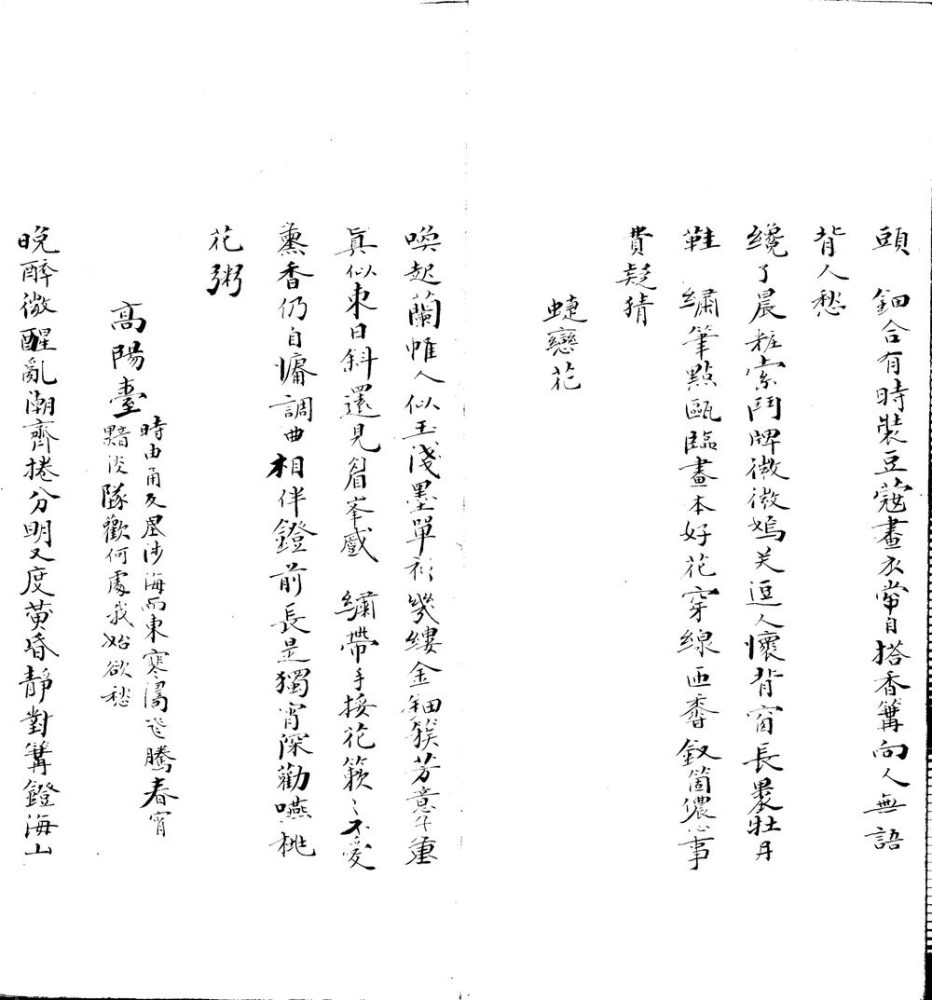 頭　鈿合有時裝豆蔻畫衣常自搭香篝向人無語
背人愁
纔了晨粧索鬥牌微微嫣笑逗人懷背窗長㬠牡丹
鞋　繡筆點甌臨畫本好花穿線匝香釵箇儂心事
費疑猜
蜨戀花
喚起蘭帷人似玉淺墨單衫幾縷金鈿簇芳意千重
真似束日斜還見眉峯蹙　繡帶手挼花簌〻不愛
熏香仍自慵調曲相伴鐙前長是獨宵深勸嚥桃
花粥
高陽臺
時由甬反屋涉海而東寒濤 騰春宵
黯淡隊歡何處我始欲愁
晚醉微醒亂潮齊捲分明又度黃昏靜對篝鐙海山